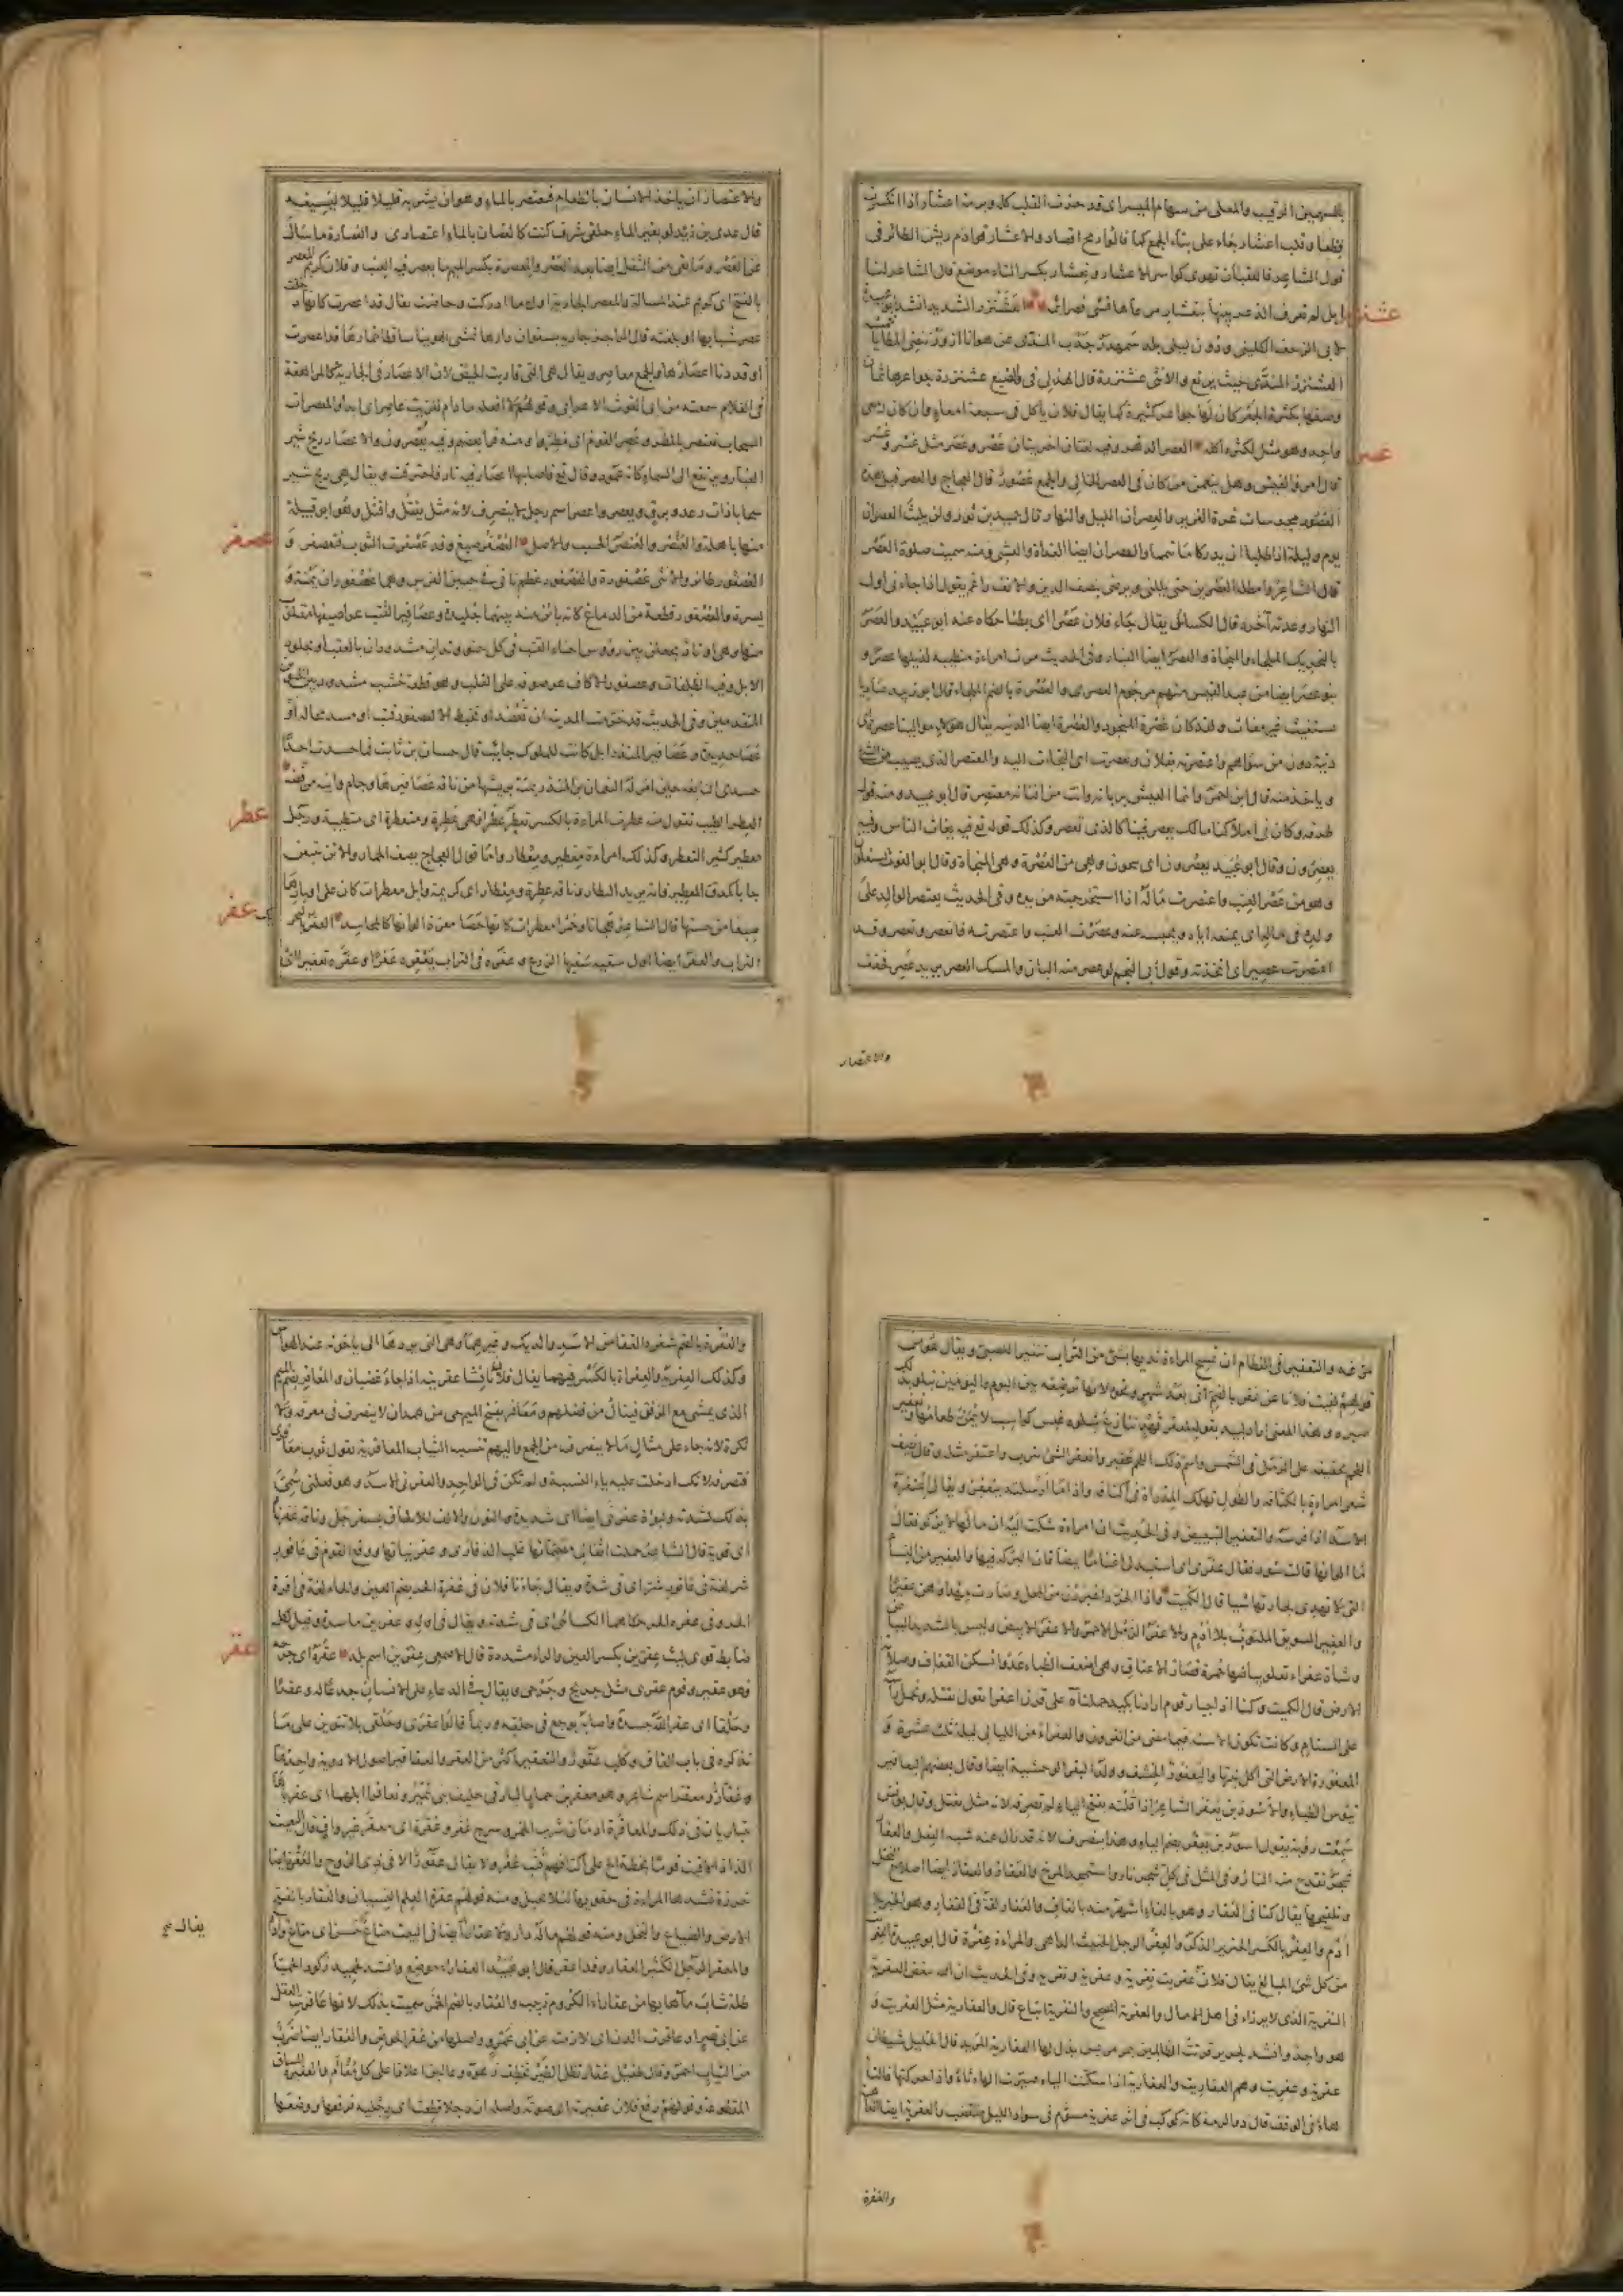 بالسهمين الرقيب والمعلى من سهام الميسر اى قد حزت القلب كله وبرمة اعشار اذا انكسرت
قطعا وقلب اعشار جاء على بناء الجمع كما قالوا رمح اقصاد والاعشار قوادم ريش الطائر فى
قول الشاعر فالعقبان تهوى كواسر الاعشار وتعشار بكسر التاء موضع قال الشاعر لنا
ابل لم تعرف الذعر بينها بتعشار مرعاها قسى فصرائمه العشنزر الشديد انشد ابو عبيدة
عشنزر
لابى الزحف الكلينى ودون ليلى بلد سمهدر جدب المندى عن هوانا ازور ينضى المطايا خمسه
العشنزر المندى حيث يرتع والانثى عشنزرة قال الهذلى فى الضبع عشنزرة جواعرها ثمان
وصفها بكثرة الجعر كان لها جواعر كثيرة كما يقال فلان ياكل فى سبعة امعاء وان كان له معى
واحد وهو مثل لكثرة اكله العصر الدهر وفيه لغتان اخريان عصر وعصر مثل عسر وعسر
عصر
قال امرؤ القيس وهل ينعمن من كان فى العصر الخالى والجمع عصور قال العجاج والعصر قبل هذه
العصور مجرسات غرة الغرير والعصران الليل والنهار قال حميد بن ثور ولن يلبث العصران
يوم وليلة اذا طلبا ان يدركا ما تيمما والعصران ايضا الغداة والعشى ومنه سميت صلوة العصر
قال الشاعر وامطله العصرين حتى يملنى ويرضى بنصف الدين والانف راغم يقول اذا جاء فى اول
النهار وعدته آخره قال الكسائى يقال جاء فلان عصرا اى بطئا حكاه عنه ابو عبيد والعصر
بالتحريك الملجاء والمنجاة والعصر ايضا الغبار وفى الحديث مرت امراءة متطيبة لذيلها عصر و
بنو عصر ايضا من عبد القيس منهم مرجوم العصرى والعصرة بالضم الملجاء قال ابو زبيد صاديا
يستغيث غير مغاث ولقد كان عصرة المنجود والعصرة ايضا الدنية يقال هولاء موالينا عصرة اى
دنية دون من سواهم واعتصرت بفلان وتعصرت اى التجات اليه والمعتصر الذى يصيب من الشئ
وياخذ منه قال ابن احمر وانما العيش بربانه وانت من افنانه معتصر قال ابو عبيد ومنه قول
طرفه وكان فى املاكنا مالك يعصر فينا كالذى تعصر وكذلك قوله تع فيه يغاث الناس وفيه
يعصرون وقال ابو عبيد يعصرون اى ينجون وهى من العصرة وهى المنجاة وقال ابو الغوث يستغلون
وهو من عصر العنب واعتصرت ماله اذا استخرجته من يده وفى الحديث يعتصر الوالد على
ولده فى ماله اى يمنعه اياه ويحبسه عنه وعصرت العنب واعتصرته فانعصر وتعصر وقد
اعتصرت عصيرا اى اتخذته وقول ابى النجم لو عصر منه البان والمسك انعصر يريد عصر فخفف
والاعتصار
والاعتصار ان ياخذ الانسان بالطعام فيعتصر بالماء وهو ان يشربه قليلا قليلا ليسيغه
قال عدى بن زيد لو بغير الماء حلقى شرق كنت كالغصان بالماء اعتصارى والعصارة ما سال
عن العصر وما بقى من الثفل ايضا بعد العصر والمعصرة بكسر الميم ما يعصر فيه العنب وفلان كريم المعصر
بالفتح اى كريم عند المسالة والمعصر الجارية اول ما ادركت وحاضت يقال قد اعصرت كانها دخلت
عصر شبابها او بلغته قال الراجز جارية بسفوان دارها تمشى الهوينا ساقطا خمارها قد اعصرت
او قد دنا اعصارها والجمع معاصر ويقال هى التى قاربت الحيض لان الاعصار فى الجارية كالمراهقة
فى الغلام سمعته من ابى الغوث الاعرابى وقولهم لا افعله ما دام للزيت عاصر اى ابدا والمعصرات
السحاب تعتصر بالمطر وعصر القوم اى مطروا ومنه قرا بعضهم وفيه يعصرون والاعصار ريح تثير
الغبار ويرتفع الى السماء كانه عمود وقال تع فاصابها اعصار فيه نار فاحترقت ويقال هى ريح تثير
سحابا ذات رعد وبرق ويعصر واعصر اسم رجل لا ينصرف لانه مثل يقتل واقتل وهو ابو قبيلة
منها باهلة والعنصر والعنصر الحسب والاصل العصفر صبغ وقد عصفرت الثوب فتعصفر و
عصفر
العصفور طائر والانثى عصفورة والعصفور عظم ناتى فى جبين الفرس وهما عصفوران يمنة و
يسرة والعصفور قطعة من الدماغ كانه بائن منه بينهما جليدة وعصافير القتب عراصيفها مقلوب
منها وهى اوتاد يجعلن بين رؤس احناء القتب فى كل حنو وتدان مشدودان بالعقب او بجلود
الابل وفيه الظلفات وعصفور الاكاف عرصوفه على القلب وهو قطعة خشب مشدود بين الحنوين
المقدمين وفى الحديث قد حرمت المدينة ان تعضد او تخبط الا لعصفور قتب او مسد محالة او
عصا حديدة وعصافير المنذر ابل كانت للملوك نجائب قال حسان بن ثابت فما حسدت احدا
حسدى النابغه حين امر له النعمان بن المنذر بمئة بريشها من نوق عصافيره وجام وانيه من فضه
العطر الطيب تقول منه عطرت المراءة بالكسر تعطر عطرا فهى عطرة ومتعطرة اى متطيبة ورجل
عطر
معطير كثير التعطر وكذلك امراءة معطير ومعطار واما قول العجاج يصف الحمار والاتن يتبعن
جابا كمدق المعطير فانه يريد العطار وناقه عطرة ومعطار اى كريمة وابل معطرات كان على اوبارها
صبغا من حسنها قال الشاعر هجانا وحمرا معطرات كانها حصا مغرة الوانها كالمجاسد العفر بالتحر
يك
عفر
التراب والعفر ايضا اول سقيه سقيها الزرع وعفره فى التراب يعفره عفرا وعفره تعفيرا اى
مرغه والتعفير فى الفطام ان تمسح المراءة ثديها بشئ من التراب تنفيرا للصبى ويقال هو من
قولهم لقيت فلانا عن عفر بالضم اى بعد شهر ونحوه لانها ترضعه بين اليوم واليومين تبلو بذلك
صبره وهذا المعنى اراد لبيد بقوله لمعفر قهد تنازع شلوه غبس كواسب لا يمن طعامها وتعفير
اللحم تجفيفه على الرمل فى الشمس واسم ذلك اللحم العفير وانعفر الشئ تترب واعتفر مثله وقال يصف
شعر امراءة بالكثافه والطول تهلك المدراة فى اكنافه واذا ما ارسلته ينعفر ويقال اعتفره
الاسد اذا فرسه والتعفير التبييض وفى الحديث ان امراءة شكت اليه ان مالها لا يزكو فقال
ما الوانها قالت سود فقال عفرى اى استبدلى اغناما بيضا فان البركة فيها والعفير من النساء
التى لا تهدى لجارتها شيا قال الكميت واذا الخرد اغبررن من المحل وصارت مهداوهن عفيرا
والعفير السويق الملتوت بلا ادم والاعفر الرمل الاحمر والاعفر الابيض وليس بالشديد البياض
وشاة عفراء تعلو بياضها حمرة قصار الاعناق وهى اضعف الظباء عدوا تسكن القفاف وصلابة
الارض قال الكميت وكنا اذا جبار قوم ارادنا بكيد حملناه على قرن اعفرا نقول نقتله ونحمل راسه
على السنام وكانت تكون الاسنة فيما مضى من القرون والعفراء من الليالى ليلة ثلث عشرة و
المعفورة الارض التى اكل نبتها واليعفور الخشف وولد البقرة الوحشية ايضا وقال بعضهم اليعافير
تيوس الظباء والاسود بن يعفر الشاعر اذا قلته بفتح الياء لم تصرفه لانه مثل يقتل وقال يونس
سمعت روبة يقول اسود بن يعفر بضم الياء وهذا ينصرف لانه قد زال عنه شبه الفعل والعفار
شجر تقدح منه النار وفى المثل فى كل شجر نار واستمجد المرخ والعفار والعفار ايضا اصلاح النخل
وتلقيحها يقال كنا فى العفار وهو بالفاء اشهر منه بالقاف والعفار لغة فى القفار وهو الخبز بلا
ادم والعفر بالكسر الخنزير الذكر والعفر الرجل الخبيث الداهى والمراءة عفرة قال ابو عبيدة العفر
من كل شئ المبالغ يقال فلان عفريت نفريت وعفرية ونفرية وفى الحديث ان الله يبغض العفرية
النفرية الذى لا يرزاء فى اهل ولا مال والعفرية المصحح والنفرية اتباع قال والعفارية مثل العفريت و
هو واحد وانشد لجرير قرنت الظالمين بمرمريس يذل لها العفارية المريد قال الخليل شيطان
عفرية وعفريت وهم العفاريت والعفارية اذا سكنت الياء صيرت الهاء تاء واذا حركتها فالتاء
هاء فى الوقف قال ذو الرمة كانه كوكب فى اثر عفرية مسوم فى سواد الليل منقضب والعفرية ايضا
والعفرة
والعفرة بالضم شعرة القفا من الاسد والديك وغيرهما وهى التى يردها الى يافوخه عند الهراش
وكذلك العفرية والعفراة بالكسر فيهما يقال جاء فلان نافشا عفريته اذا جاء غضبان والمعافر بضم الميم
الذى يمشى مع الرفق فينال من فضلهم ومعافر بفتح الميم حى من همدان لا ينصرف فى معرفة ولا
نكرة لانه جاء على مثال ما لا ينصرف من الجمع واليهم تنسب الثياب المعافرية تقول ثوب معافرى
فتصرفه لانك ادخلت عليه ياء النسبة ولم تكن فى الواحد والعفرنى الاسد وهو فعلنى سمى
بذلك لشدته ولبوة عفرنى ايضا اى شديدة والنون والالف للالحاق بسفرجل وناقة عفرناة
اى قوية قال الشاعر حملت اثقالى مصمماتها غلب الذفارى وعفرنياتها ووقع القوم فى عافور
شر لغة فى عاثور شر اى فى شدة ويقال جاءنا فلان فى عفرة الحر بضم العين والفاء لغة فى افرة
الحر وفى عفرة الحر حكاهما الكسائى اى فى شدته ويقال فى اوله وعفرين ماسدة وقيل لكل
ضابط قوى ليث عفرين بكسر العين والراء مشددة قال الاصمعى عفرين اسم بلد عقره اى جرحه
عقر
فهو عقير وقوم عقرى مثل جريح وجرحى ويقال فى الدعاء على الانسان جدعا له وعقرا
وحلقا اى عقر الله جسده واصابه بوجع فى حلقه وربما قالوا عقرى وحلقى بلا تنوين على ما
نذكره فى باب القاف وكلب عقور والتعقير اكثر من العقر والعقاقير اصول الادوية واحدها
عقار ومعقر اسم شاعر وهو معقر بن حمار البارقى حليف بنى نمير وتعاقرا ابلهما اى عقراها
يتباريان فى ذلك والمعاقرة ادمان شرب الخمر وسرج عقر وعقرة اى معقر غير واق قال البعيث
الد اذا لاقيت قوما بخطة الح على اكتافهم قتب عقر ولا يقال عقور الا فى ذى الروح والعقرة ايضا
خرزة تشدها المراءة فى حقويها لئلا تحبل ومنه قولهم عقرة العلم النسيان والعقار بالفتح
الارض والضياع والنخل ومنه قولهم ماله دار ولا عقار ايضا فى البيت عقار حسن اى متاع واداة
يقال
والمعقر الرجل الكثير العقار وقد اعقر قال ابو عبيد العقاراء موضع وانشد لحميد ركود الحميا
طلة شاب ماءها بها من عقاراء الكروم ربيب والعقار بالضم الخمر سميت بذلك لانها عاقرت العقل
عن ابى نصر او عاقرت الدن اى لازمته عن ابى عمرو واصلها من عقر الحوض والعقار ايضا ضرب
من الثياب احمر وقال طفيل عقار تظل الطير تخطف زهوه وعالين اعلاقا على كل مفأم والعقيرة الساق
المقطوعة وقولهم رفع فلان عقيرته اى صوته واصله ان رجلا قطعت احدى رجليه فرفعها ووضعها